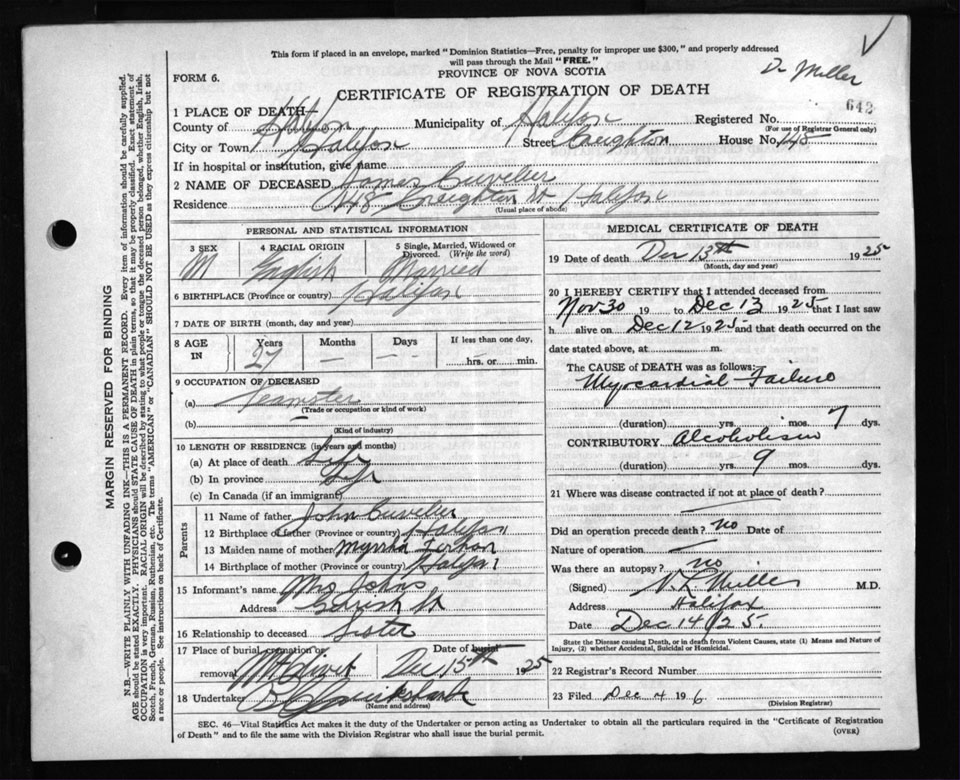 This form if placed in an envelope, marked "Dominion Statistics—Free, penalty for improper use $300," and properly addressed
will pass through the Mail "FREE."
PROVINCE OF NOVA SCOTIA
Dr Miller
FORM 6.
CERTIFICATE OF REGISTRATION OF DEATH
642
1 PLACE OF DEATH
County of Municipality of Halifax Registered No.
(For use of Registrar General only)
City or Town Halifax Street Creighton House No. 148
If in hospital or institution, give name
2 NAME OF DECEASED James Cuvelier
Residence 148 Creighton St Halifax
(Usual place of abode)
PERSONAL AND STATISTICAL INFORMATION
3 SEX 4 RACIAL ORIGIN 5 Single, Married, Widowed or
Divorced. (Write the word)
M English Married
6 BIRTHPLACE (Province or country) Halifax
7 DATE OF BIRTH (month, day and year)
8 AGE IN Years Months Days If less than one day,
27 — — hrs. or min.
9 OCCUPATION OF DECEASED
(a) Teamster
(Trade or occupation or kind of work)
(b)
(Kind of industry)
10 LENGTH OF RESIDENCE (in years and months)
(a) At place of death Life
(b) In province Life
(c) In Canada (if an immigrant)
Parents
11 Name of father John Cuvelier
12 Birthplace of father (Province or country) Halifax
13 Maiden name of mother
14 Birthplace of mother (Province or country) Halifax
15 Informant's name Mrs Johns
Address St
16 Relationship to deceased Sister
17 Place of burial, cremation or removal Date of burial
Mt Olivet Dec 15th 1925
18 Undertaker Cruikshank
(Name and address)
MEDICAL CERTIFICATE OF DEATH
19 Date of death Dec 13th 1925
(Month, day and year)
20 I HEREBY CERTIFY that I attended deceased from
Nov 30 19 to Dec 13 1925 that I last saw
h alive on Dec 12 1925 and that death occurred on the
date stated above, at m.
The CAUSE of DEATH was as follows:
Myocardial Failure
(duration) yrs. mos. 7 dys.
CONTRIBUTORY Alcoholism
(duration) yrs. 9 mos. dys.
21 Where was disease contracted if not at place of death?
Did an operation precede death? no Date of
Nature of operation —
Was there an autopsy? no
(Signed) N. L. Miller M.D.
Address Halifax
Date Dec 14/25
State the Disease causing Death, or in death from Violent Causes, state (1) Means and Nature of
Injury, (2) whether Accidental, Suicidal or Homicidal.
22 Registrar's Record Number
23 Filed Dec 4 19 6
(Division Registrar)
SEC. 46—Vital Statistics Act makes it the duty of the Undertaker or person acting as Undertaker to obtain all the particulars required in the "Certificate of Registration
of Death" and to file the same with the Division Registrar who shall issue the burial permit.
(OVER)
MARGIN RESERVED FOR BINDING
N.B.—WRITE PLAINLY WITH UNFADING INK—THIS IS A PERMANENT RECORD. Every item of information should be carefully supplied.
AGE should be stated EXACTLY. PHYSICIANS should STATE CAUSE OF DEATH in plain terms, so that it may be properly classified. Exact statement of
OCCUPATION is very important. RACIAL ORIGIN will be described by stating to what people or tongue the deceased person belonged, whether English, Irish,
Scotch, French, German, Russian, Ruthenian, etc. The terms "AMERICAN" or "CANADIAN" SHOULD NOT BE USED as they express citizenship but not
a race or people. See instructions on back of Certificate.